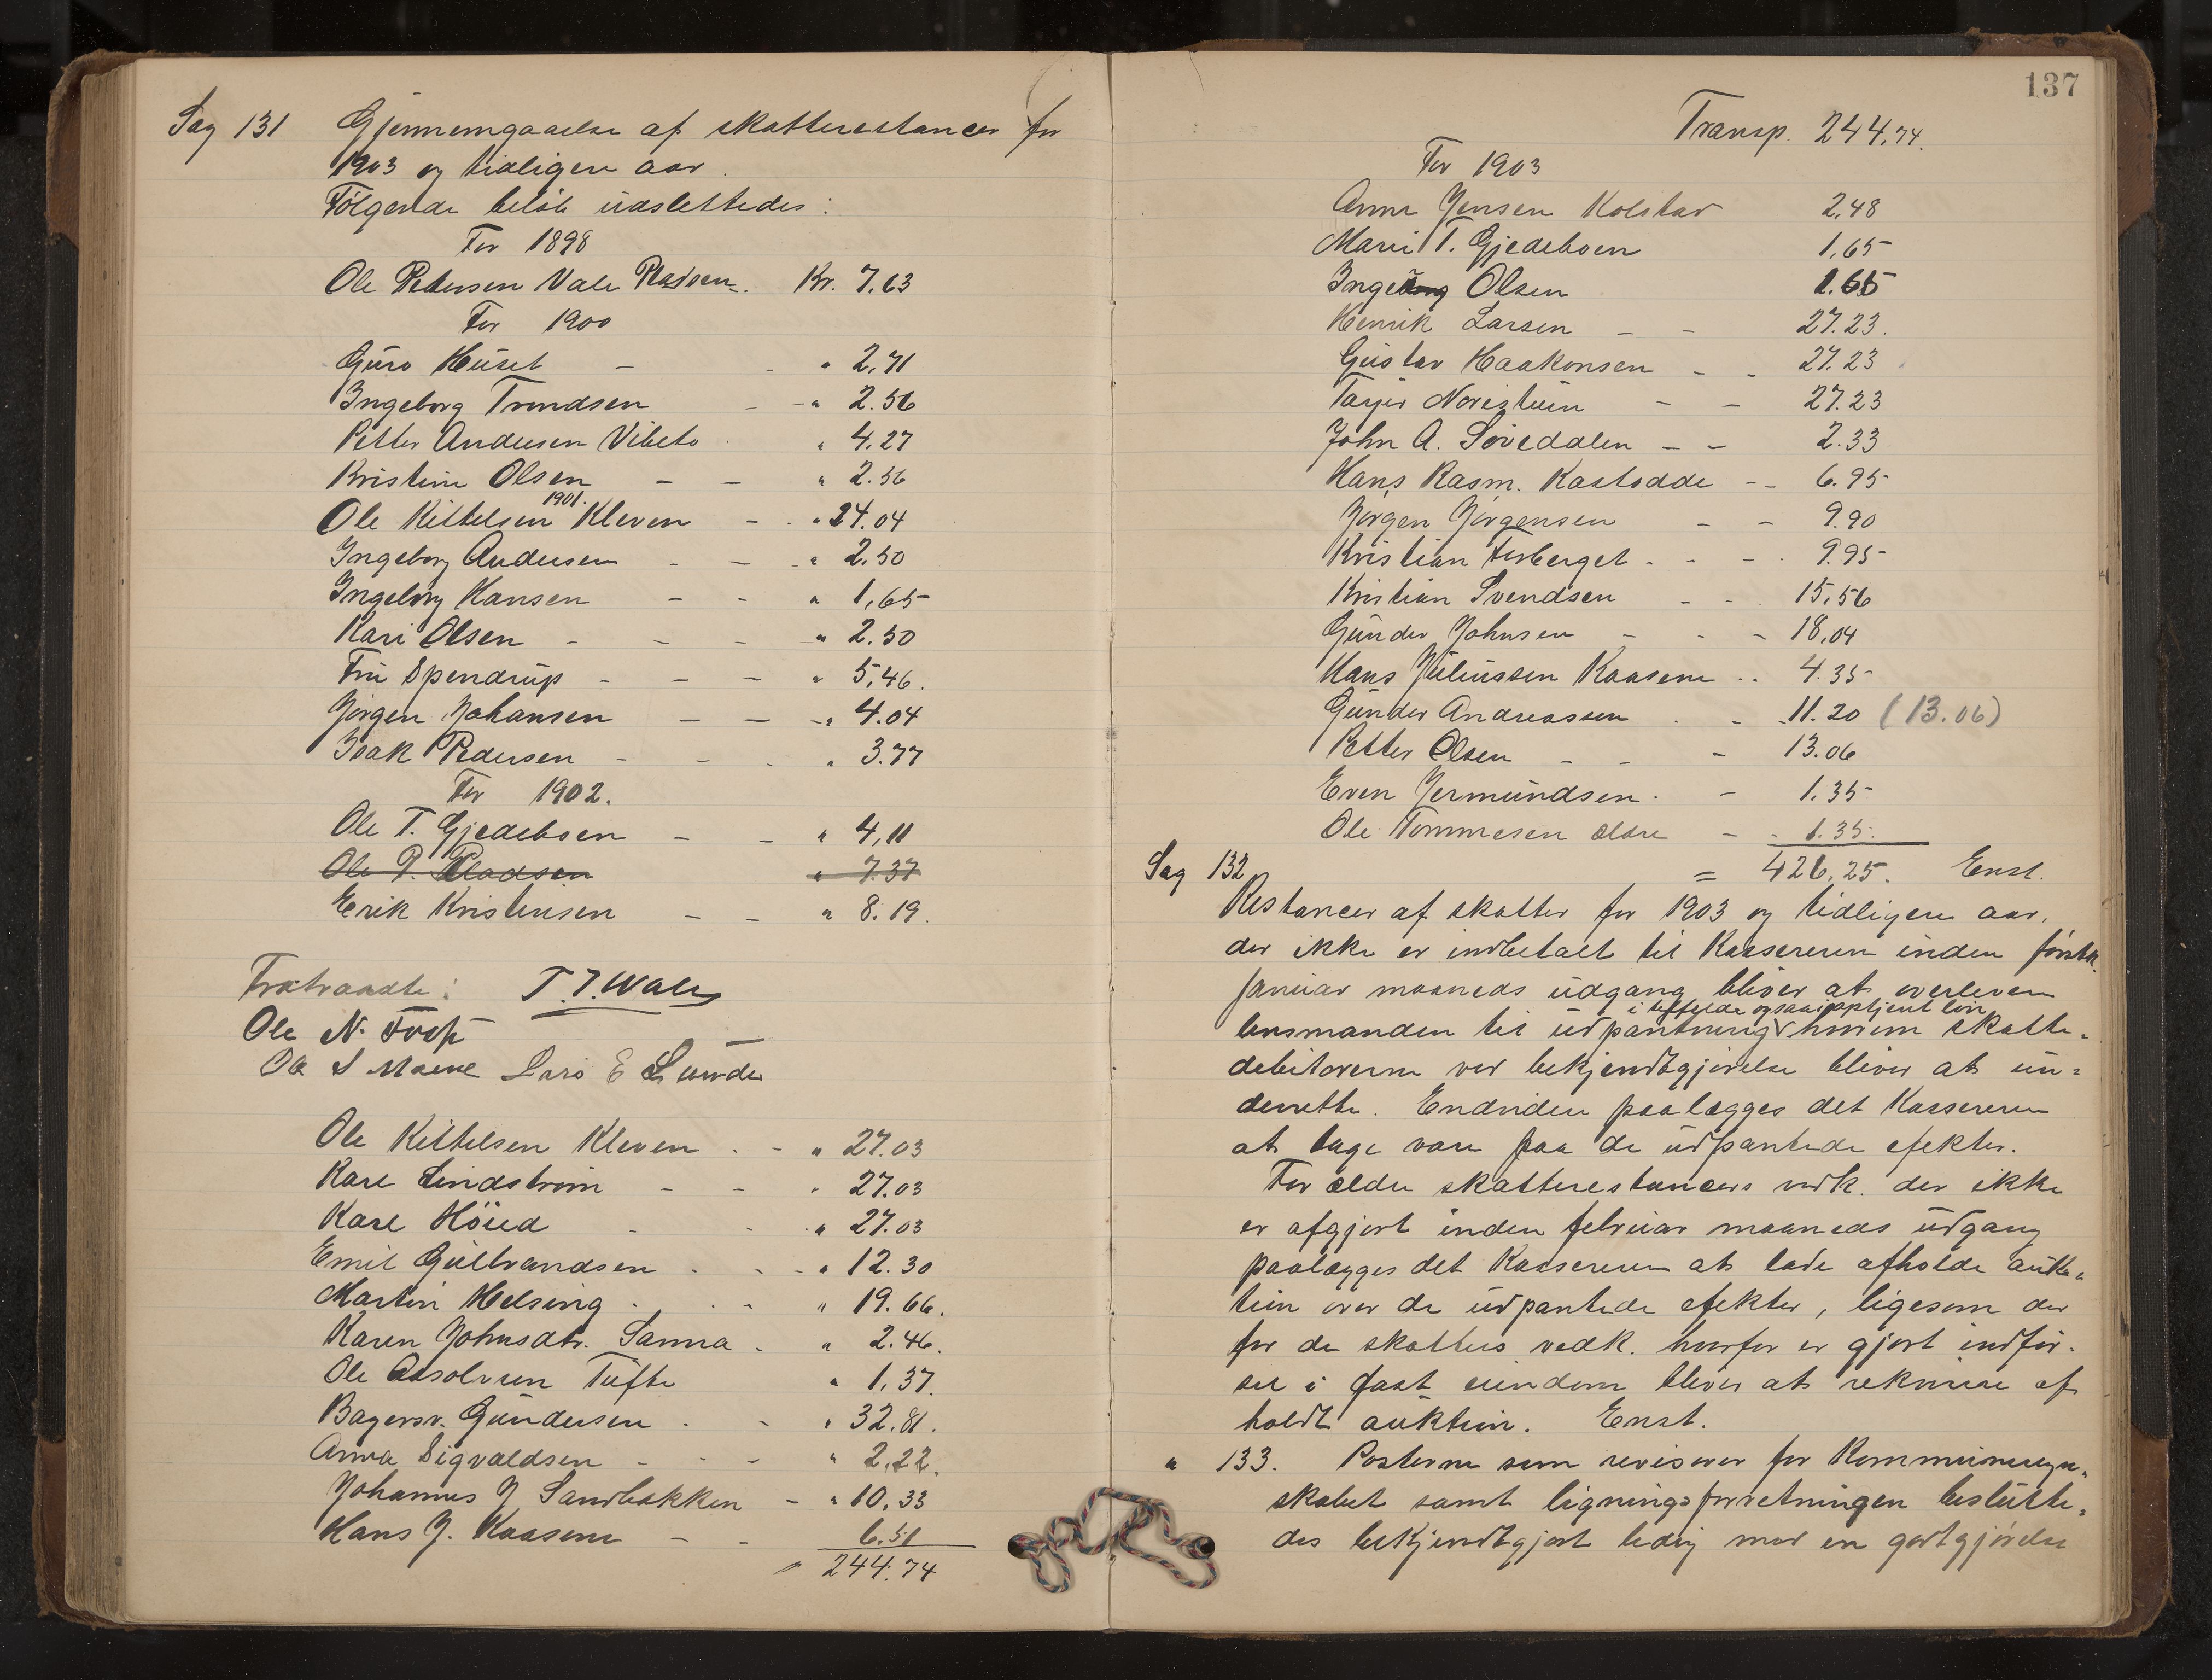 Sag 131 Gjennemgaaelse af skatterestancer for
1903 og tidligere aar.
Følgende beløb udslettedes:
For 1898
Ole Pedersen Vale Pladsen. Kr. 7.63
For 1900
Guro Huset - - " 2,71
Ingeborg Trondsen - - " 2.56
Petter Andersen Vibeto " 4.27
Kristine Olsen - - " 2.56
1901.
Ole Kittelsen Kleven - - " 24.04
Ingeborg Andersen - - " 2.50
Ingeborg Hansen - - " 1,65
Kari Olsen - - - " 2.50
Fru Spendrup - - - " 5,46.
Jørgen Johansen - - - " 4.04
Isak Pedersen - - - " 3.77
For 1902.
Ole T. Gjedeboen - - " 4,11
Ole P. Pladsen " 7.37
Erik Kristensen - - " 8.19.
Fratraadte: T. J. Wale
Ole N. Trop
Ole S Moene Lars E Lunde
Ole Kittelsen Kleven - - " 27.03
Karl Lindstrøm - - " 27.03
Karl Höied - - " 27.03
Emil Gulbrandsen - - - " 12.30
Martin Helsing - - - " 19.66.
Karen Johnsdtr. Sanna - " 2.46.
Ole Aasolvsen Tufte " 1,37.
Bagersv. Gundersen - - " 32,81.
Anna Sigvaldsen - - - " 2,22.
Johannes J. Sandbakken - " 10,33
Hans J. Kaasene - - 6.51
" 244.74
137
Transp. 244,74.
For 1903
Anne Jensen Kolstad 2,48
Mari T. Gjedeboen 1,65
Inge Olsen 1.65
Henrik Larsen - - 27.23.
Gustav Haakonsen - - 27.23
Tarjei Noristuen - - 27.23
John A. Sovedalen - - 2.33
Hans Rasm. Kastodde - - 6.95
Jørgen Jørgensen - - 9.90
Kristian Forberget - - - 9.95
Kristian Svendsen - - 15,56
Gunder Johnsen - - - 18,04
Hans Juliussen Kaasene - - 4.35
Gunder Andreassen - - 11.20 (13.06)
Petter Olsen - - - 13.06
Even Jermundsen - - 1.35
Ole Tommesen ældre - - 1.35.
= 426,25. Enst.
Sag 132
Restancer af skatter for 1903 og tidligere aar,
der ikke er indbetalt til Kassereren inden førstk.
januar maaneds udgang bliver at overlevere
i tilfælde ogsaa i optjent løn
lensmanden til udpantning hvorom skatte-
debitorerne ved bekjendtgjørelse bliver at un-
derrette. Endvidere paalægges det Kassereren
at tage vare paa de udpantede efekter.
For ældre skatterestancers vedk. der ikke
er afgjort inden februar maaneds udgang
paalægges det Kassereren at lade afholde auk-
tion over de udpantede efekter, ligesom der
for de skatters vedk. hvorfor er gjort indfør-
sel i fast eiendom bliver at rekvirere af
holdt auktion. Enst.
" 133. Posterne som revisorer for Kommuneregn-
skabet samt ligningsforretningen beslutte-
des bekjendtgjort ledig mod en godtgjørelse